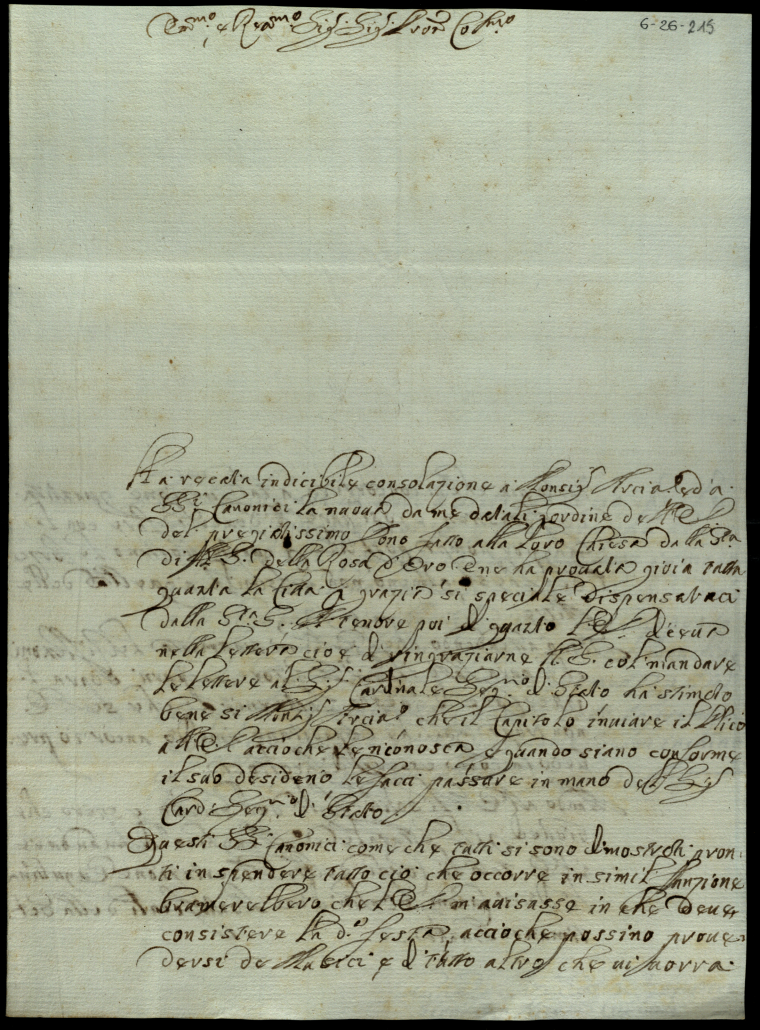 Em.mo e Reu.mo Sig. Sig. Pron Col.mo
6-26-215
Ha recata indicibile consolazione a Monsig Arciu. ed a
SS.i Canonici la nuoua da me datali d'ordine de
del pregiatissimo Dono fatto alla loro Chiesa dalla S.tà
di N. S. della Rosa d'Oro e ne ha prouata gioia tutta
quanta la Città p grazia si speciale dispensataci
dalla S.tà S. Al tenore poi di quanto
nella lettera cioè di ringraziarne N. S. col mandare
le lettere al Sig. Cardinale Seg.rio di Stato ha stimato
bene si Monsig Arciu. che il Capitolo inuiare il Plico
a accioche le riconosca e quando siano conforme
il suo desiderio le facci passare in mano del Sig
Card. Seg.rio di Stato
Questi SS. Canonici come che tutti si sono dimostrati pron
ti in spendere tutto cio che occorre in simil funzione
bramerebbero che m'auisasse in che deue
consistere la d.a festa, accioche possino proue
dersi de Musici e di tutto altro che ui uorra